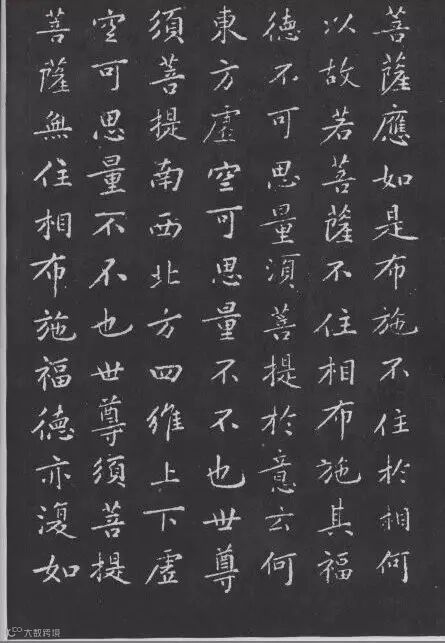 菩薩應如是布施不住於相何
以故若菩薩不住相布施其福
德不可思量須菩提於意云何
東方虛空可思量不不也世尊
須菩提南西北方四維上下虛
空可思量不不也世尊須菩提
菩薩無住相布施福德亦復如
大数跨境